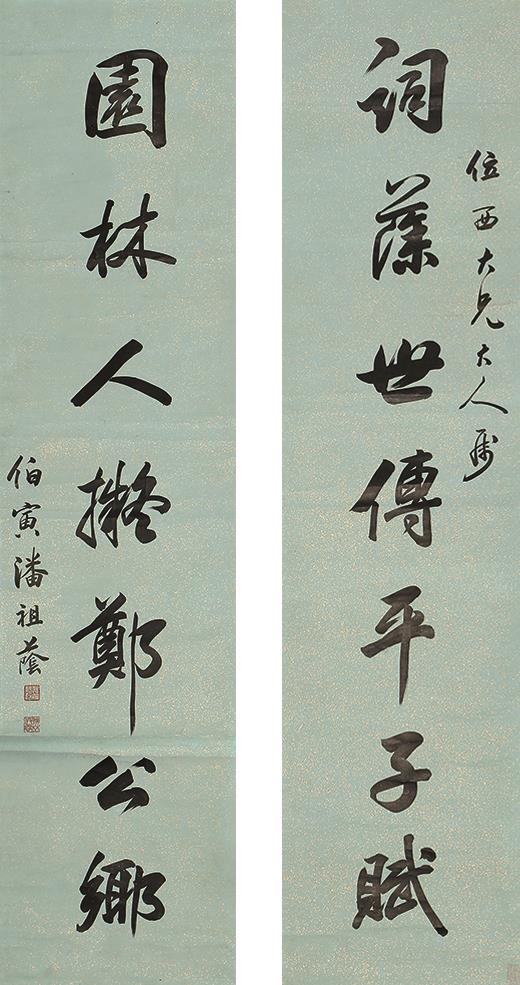 位西大兄大人属
詞藻世傳平子賦
園林人擬鄭公鄉
伯寅潘祖蔭